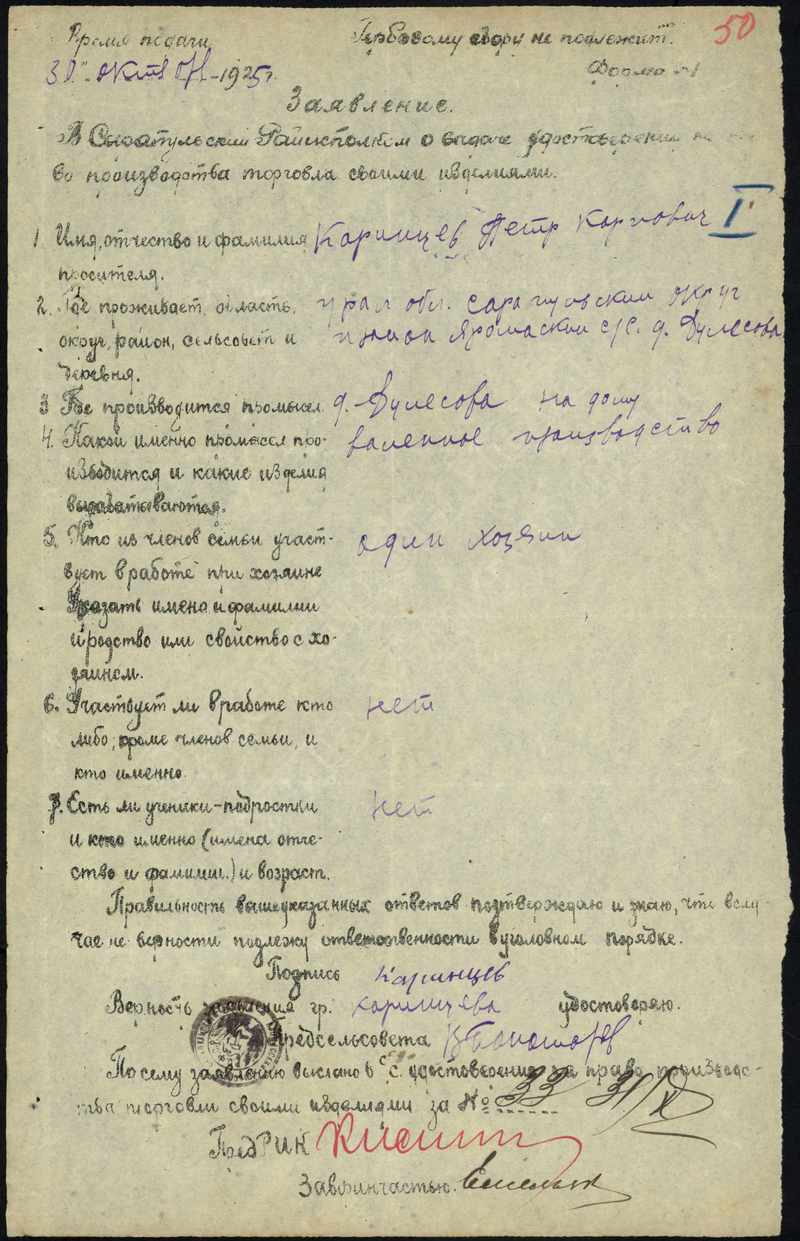 50
Время подачи Гербовому сбору не подлежит.
30 октяб 1925 г. Форма №1
Заявление.
В Сарапульский Райисполком о выдаче удостоверения на
во производства торговла своими изделиями.
I
1. Имя, отчество и фамилия Каринцев Петр Карпович
просителя.
2. Где проживает, область, Урал обл. Сарапульский округ
округ, район, сельсовет и района Яромаский с/с. д. Дулесова
деревня.
3 Где производится промысел д. Дулесова на дому
4. Какой именно промысел про- валенное производство
изводится и какие изделия
вырабатываются.
5. Кто из членов семьи участ- один хозяин
вует в работе при хозяине
Указать имена и фамилии
и родство или свойство с хо-
зяином.
6. Участвует ли в работе кто нет
либо, кроме членов семьи, и
кто именно.
7. Есть ли ученики-подростки нет
и кто именно (имена отче-
ство и фамилии.) и возраст.
Правильность вышеуказанных ответов подтверждаю и знаю, что в слу-
чае не верности подлежу ответственности в уголовном порядке.
Подпись Каринцев
Верность заявления гр. Каринцева удостоверяю.
Предсельсовета
По сему заявлению выслано в с. удостоверение на право производс-
тва торговли своими изделиями за № 33 31/X
ПредРИК
Завфинчастью.